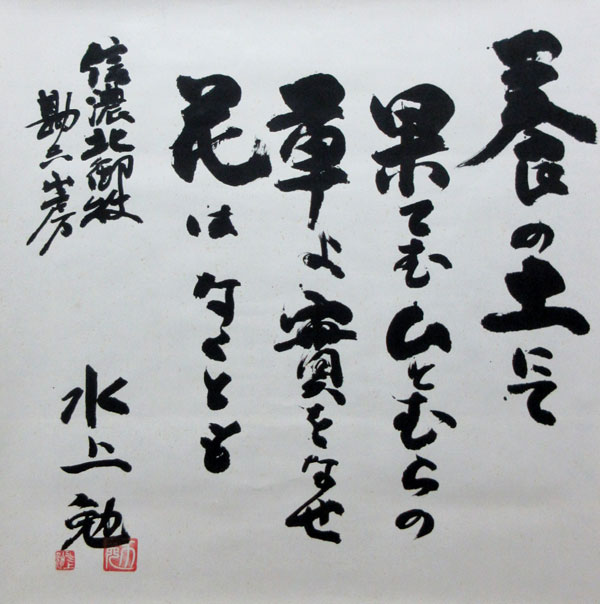 養の土にて
果てむひとむらの
草よ實をなせ
花はなくとも
信濃北御牧
勘六山房
水上勉